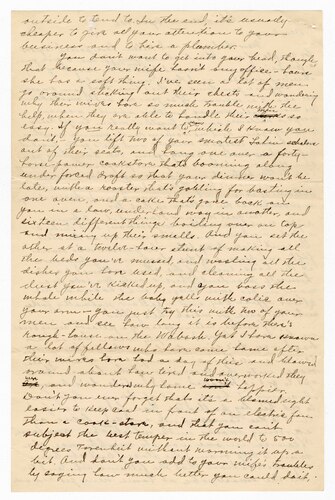 outside to tend to. In the end, it's usually
cheaper to give all your attention to your
business and to hire a plumber.
You don't want to get into your head, though,
that because your wife hasn't any office-hours
she has a soft thing. I've seen a lot of men
go around sticking out their chests and wondering
why their wives have so much trouble with the
help, when they are able to handle their so
easy. If you really want to which I know you
don't, you lift two of your
out of their seats, and put one over a forty-
horse-power cookstove that's booming along
under forced draft so that your dinner won't be
late, with a rooster that's gobbling for basting in
one oven, and a cake that's gone back on
you in a low, underhand way in another, and
sixteen different things boiling over on top
and mixing up their smells. And you set the
other at a twelve-hour stunt of making all
the beds you've mussed, and washing all the
dishes you have used, and cleaning all the
dust you've kicked up, and you boss the
whole while the baby yells with colic over
your arm—you just try this with two of your
men and see how long it is before there's
rough-house on the Wabash. Yet I have known
a lot of fellows who have come home after
their wives have had a day of this and blowed
around about how tired and overworked they
and wondered why home happier.
Don't you ever forget that it's a blamed sight
easier to keep cool in front of an electric fan
than a cook-stove, and that you can't
subject the best temper in the world to 500
degrees Farenheit without warming it up a
bit. And don't you add to your wife's troubles
by saying how much better you could do it.